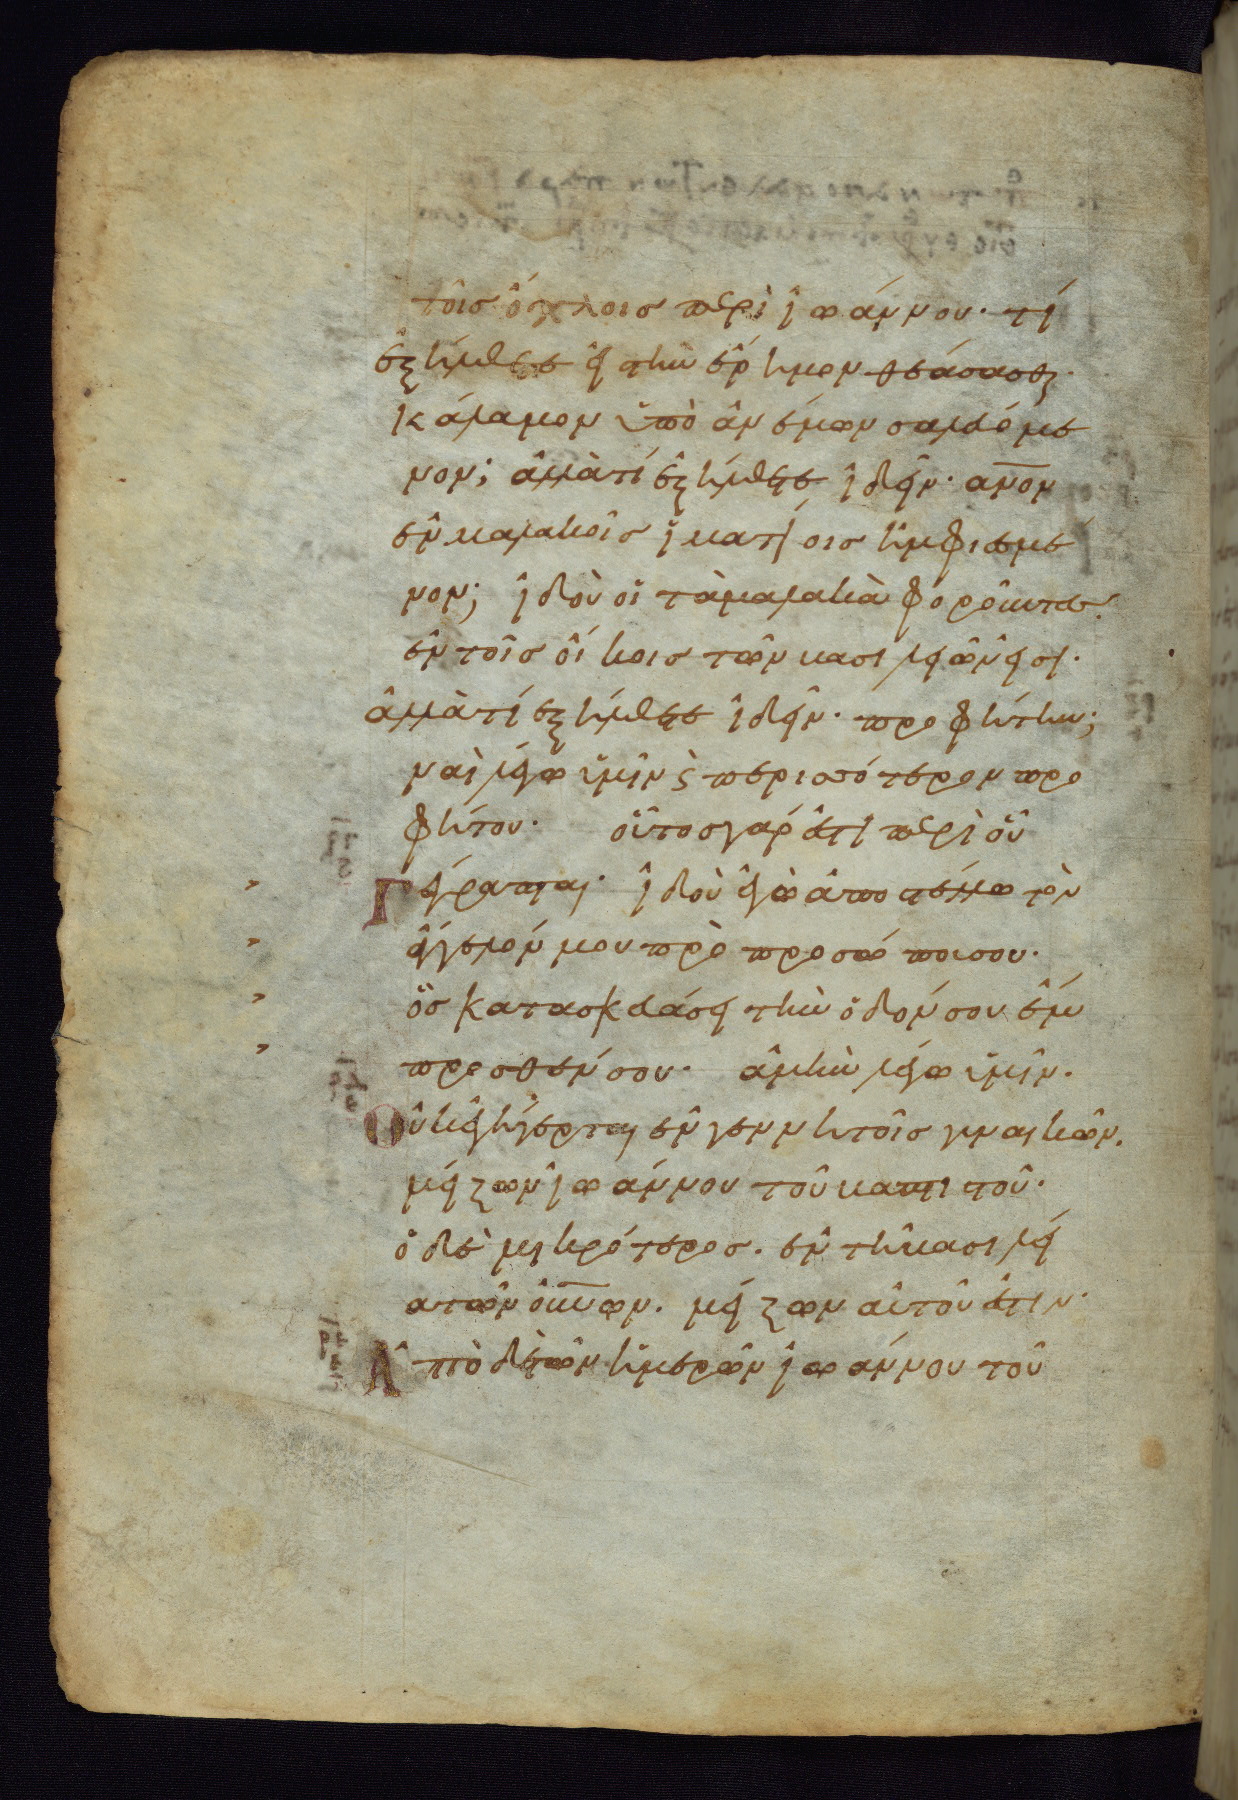 τοῖσ ὄχλοισ περὶ ἰωάννου· τί
ἐξήλθετε εἰς τὴν ἔρημον θεάσασθαι·
κάλαμον ὑπὸ ἀνέμων σαλευόμε
νον; ἀλλὰ τί ἐξήλθετε ἰδεῖν· ανον
ἐν μαλακοῖσ ἱματίοισ ἠμφιεσμέ
νον; ἰδοὺ οἱ τὰ μαλακὰ φοροῦντεσ.
ἐν τοῖσ οἴκοισ τῶν βασιλείων εἰσί·
ἀλλὰ τί ἐξήλθετε ἰδεῖν· προφήτην;
ναὶ λέγω ὑμῖν ϗ περισσότερον προ
φήτου· οὗτοσ γάρ ἐστι περὶ οὗ
Γέγραπται· ἰδοὺ ἐγὼ ἀποστέλλω τὸν
ἄγγελόν μου πρὸ προσώπου σου·
ὃσ κατασκευάσει τὴν ὁδόν σου ἔμ
προσθέν σου· ἀμὴν λέγω ὑμῖν.
Οὐκ ἐγήγερται ἐν γεννητοῖσ γυναικῶν.
μείζων ἰωάννου τοῦ βαπτιστοῦ·
ὁ δὲ μικρότεροσ. ἐν τῆ βασιλεί
α τῶν οὐνων. μείζων αὐτοῦ ἐστιν·
Ἀπὸ δὲ τῶν ἡμερῶν ἰωάννου τοῦ